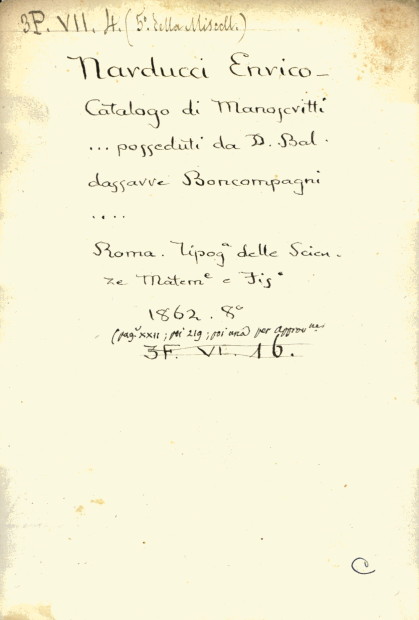 3P. VII. 4. (5º. della Miscell.)
Narducci Enrico —
Catalogo di Manoscritti
... posseduti da D. Bal-
dassarre Boncompagni
....
Roma. Tipogª delle Scien-
ze Matemᵉ e Fisᵉ
1862. 8º
(pagᵉ XXII; poi 219; poi una) per approvⁿᵉ
3F. VI. 16.
C